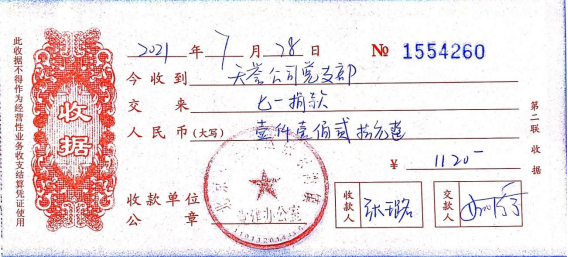 此收据不得作为经营性业务收支结算凭证使用
收据
2021 年 7 月 28 日 № 1554260
今收到 天誉公司党支部
交来 七一捐款
人民币(大写) 壹仟壹佰贰拾元整
¥ 1120-
收款单位
公章
收款人 张璐
交款人
第二联 收据